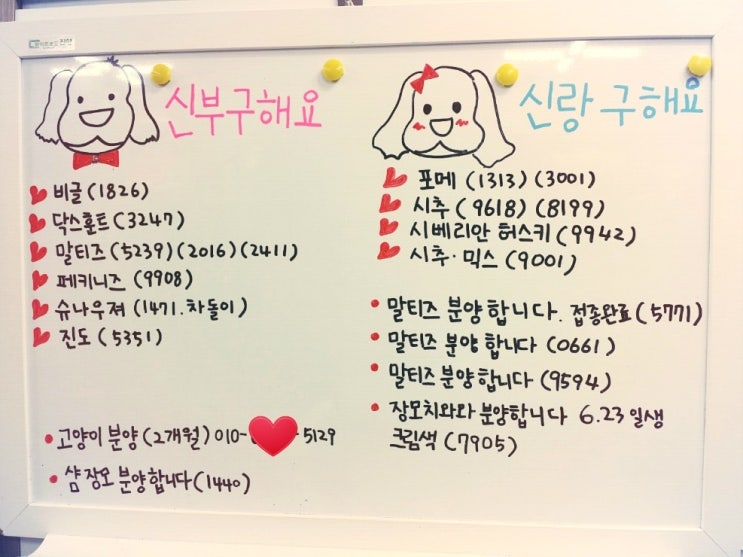 신부구해요
비글 (1826)
닥스훈트 (3247)
말티즈 (5239) (2016) (2411)
페키니즈 (9908)
슈나우져 (1471. 차돌이)
진도 (5351)
고양이 분양 (2개월) 010- - 5129
샴 장모 분양합니다 (1440)
신랑 구해요
포메 (1313) (3001)
시추 (9618) (8199)
시베리안 허스키 (9942)
시추·믹스 (9001)
말티즈 분양합니다. 접종완료 (5771)
말티즈 분양합니다 (0661)
말티즈 분양합니다 (9594)
장모치와와 분양합니다 6.23 일생
크림색 (7905)